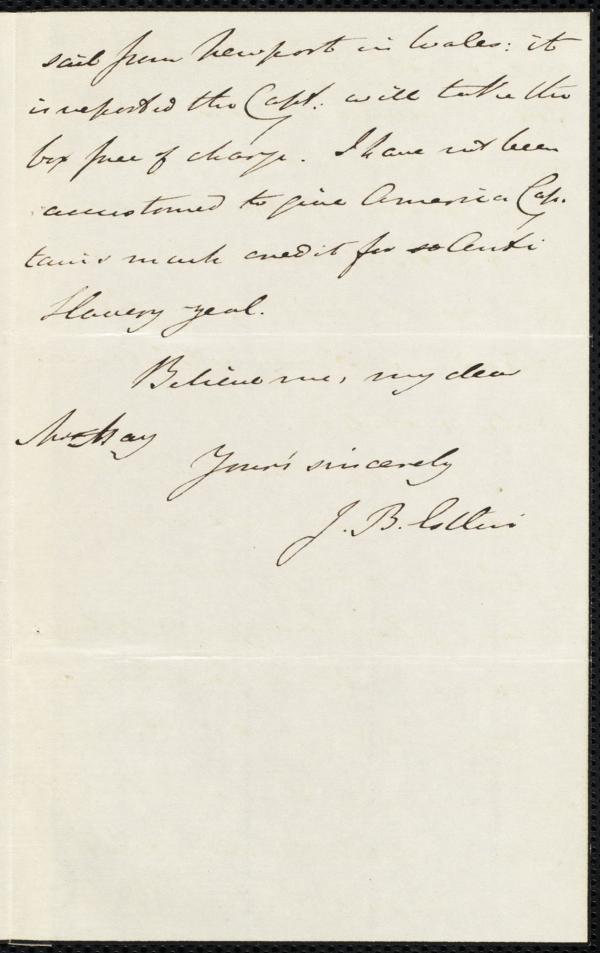 sail from Newport in Wales: it
is reported the Capt. will take the
box free of charge. I have not been
accustomed to give America Cap-
tains much credit for Anti
Slavery zeal.
Believe me, my dear
Mr May
Your's sincerely
J. B.